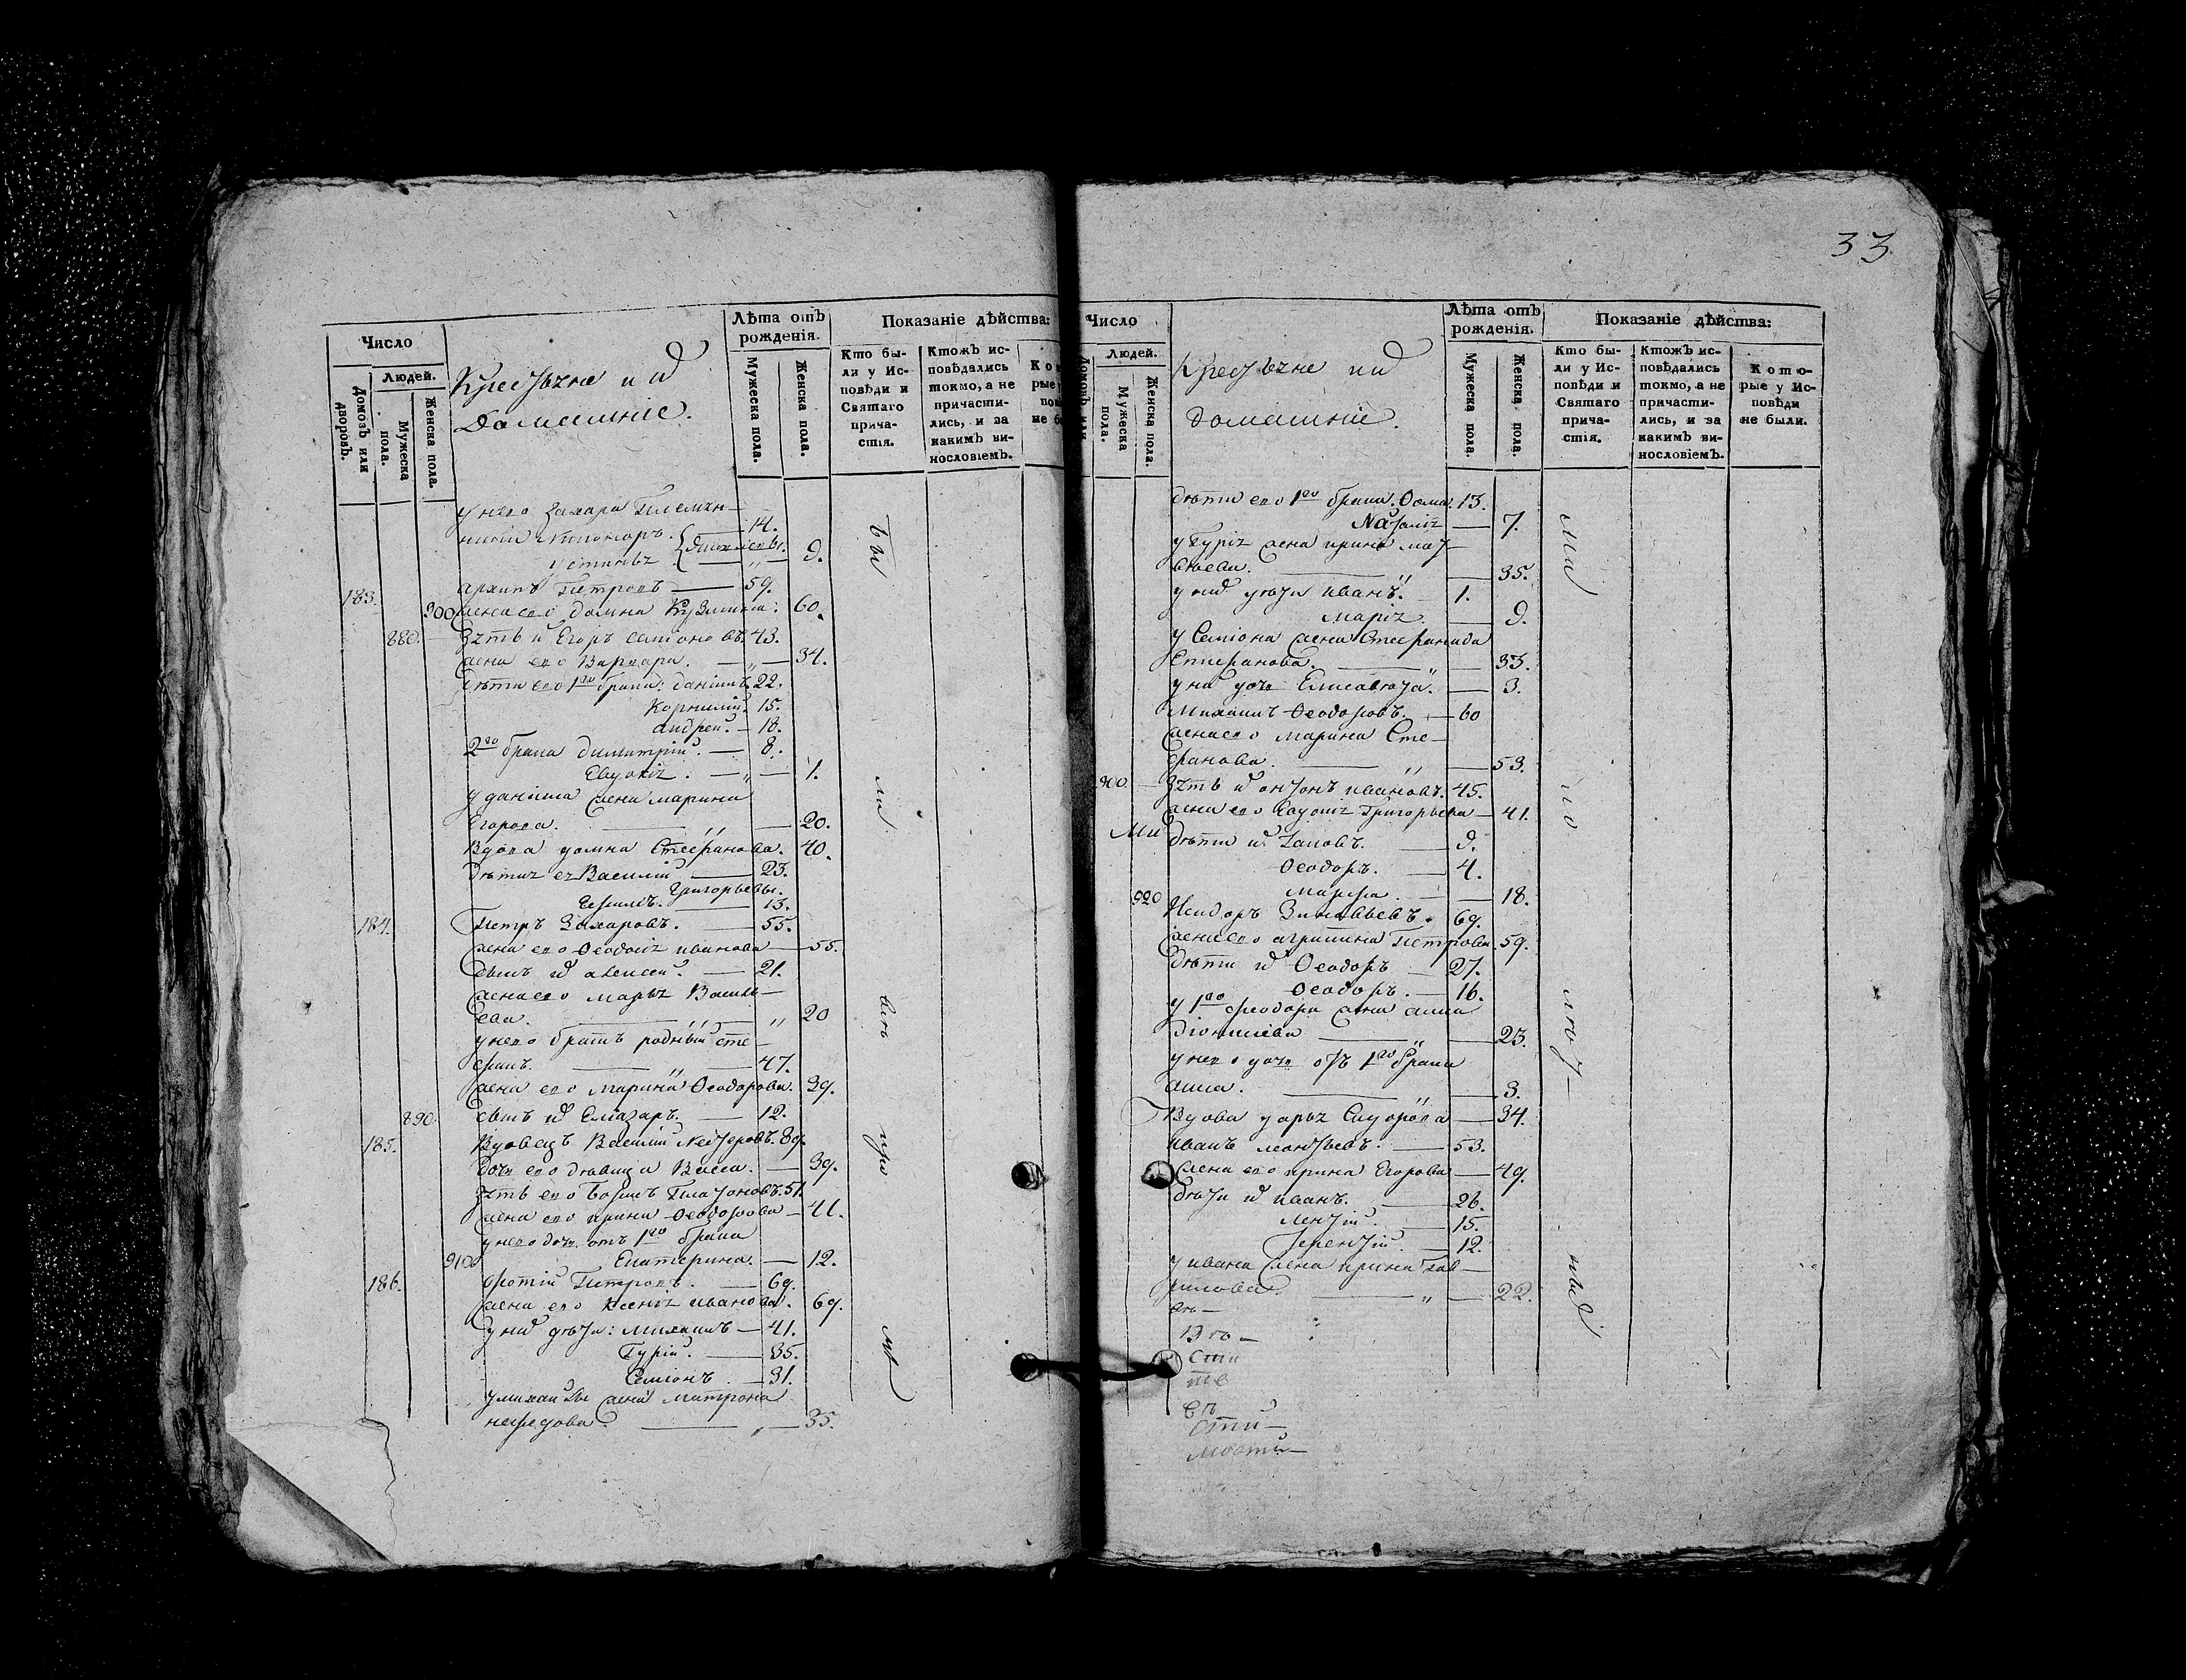 33
Число
Людей.
Домовъ или дворовъ.
Мужеска пола.
Женска пола.
Крестьяне и ихъ
Домашніе.
Лѣта отъ рожденія.
Мужеска пола.
Женска пола.
Показаніе дѣйства:
Кто были у Исповѣди и Святаго причастія.
Ктожъ исповѣдались токмо, а не причастились, и за какимъ винословіемъ.
у него Захара племян-
ники Никаноръ 14.
Устинья 9.
183. Архипъ Петровъ 59.
900 жена его Домна Кузмина. 60.
880. Зять ихъ Егоръ Семіоновъ. 43.
жена его Варвара. 34.
дѣти его 1го брака: Даніилъ 22.
Корнилій. 15.
Андрей. 18.
2го брака Димитрій. 8.
Евдокія. 1.
у Даніила жена Марина
Егорова. 20.
Вдова Домна Стефанова. 40.
дѣти ея Василій 23.
Григорьевы.
Ефимъ. 13.
184. Петръ Захаровъ. 55.
жена его Феодосія Иванова 55.
сынъ ихъ Алексей. 21.
жена его Марья Василь-
ева. 20
у него братъ родный Сте-
фанъ. 47.
жена его Марина Феодорова. 39.
890. сынъ ихъ Елиазаръ. 12.
185. Вдовецъ Василій 89.
дочь его девица Васса. 39.
зять его Борисъ Платоновъ. 51.
жена его Ирина Феодорова 41.
у него дочь отъ 1го брака
910 Екатерина. 12.
186. Фотій Петровъ. 69.
жена его Ксенія Иванова. 69.
у нихъ дѣти: Михаилъ 41.
Гурій. 35.
Семіонъ. 31.
у Михаила жена Матрона
Нефедова 35.
бы
ли
всѣ
при
Число
Людей.
Мужеска пола.
Женска пола.
Крестьяне ихъ
домашніе.
Лѣта отъ рожденія.
Мужеска пола.
Женска пола.
Показаніе дѣйства:
Кто были у Исповѣди и Святаго причастія.
Ктожъ исповѣдались токмо, а не причастились, и за какимъ винословіемъ.
Которые у Исповѣди не были.
дѣти его 1го брака. Фома. 13.
Наталія 7.
у Гурія жена Ирина Мат-
вѣева. 35.
у нихъ дѣти Иванъ. 1.
Марія 9.
у Семіона жена Стефанида
Стефанова. 33.
у нихъ дочь Елисавета. 3.
Михаилъ Феодоровъ. 60
жена его Марина Сте-
фанова. 53.
900. Зять ихъ Антонъ Ивановъ. 45.
жена его Евдокія Григорьева 41.
дѣти ихъ Іаковъ. 9.
Феодоръ. 4.
920 Марфа. 18.
Исидоръ Зиновьевъ. 69.
жена его Агрипина Петрова. 59.
Дѣти ихъ Феодоръ 27.
Феодоръ. 16.
у 1го Феодора жена Анна
Діонисіева 23.
у него дочь отъ 1го брака
Анна. 3.
Вдова Дарья Сидорова 34.
Иванъ Леонтьевъ. 53.
жена его Ирина Егорова 49.
дѣти ихъ Иванъ. 26.
15.
Терентій. 12.
у Ивана жена Ирина Гав-
рилова 22.